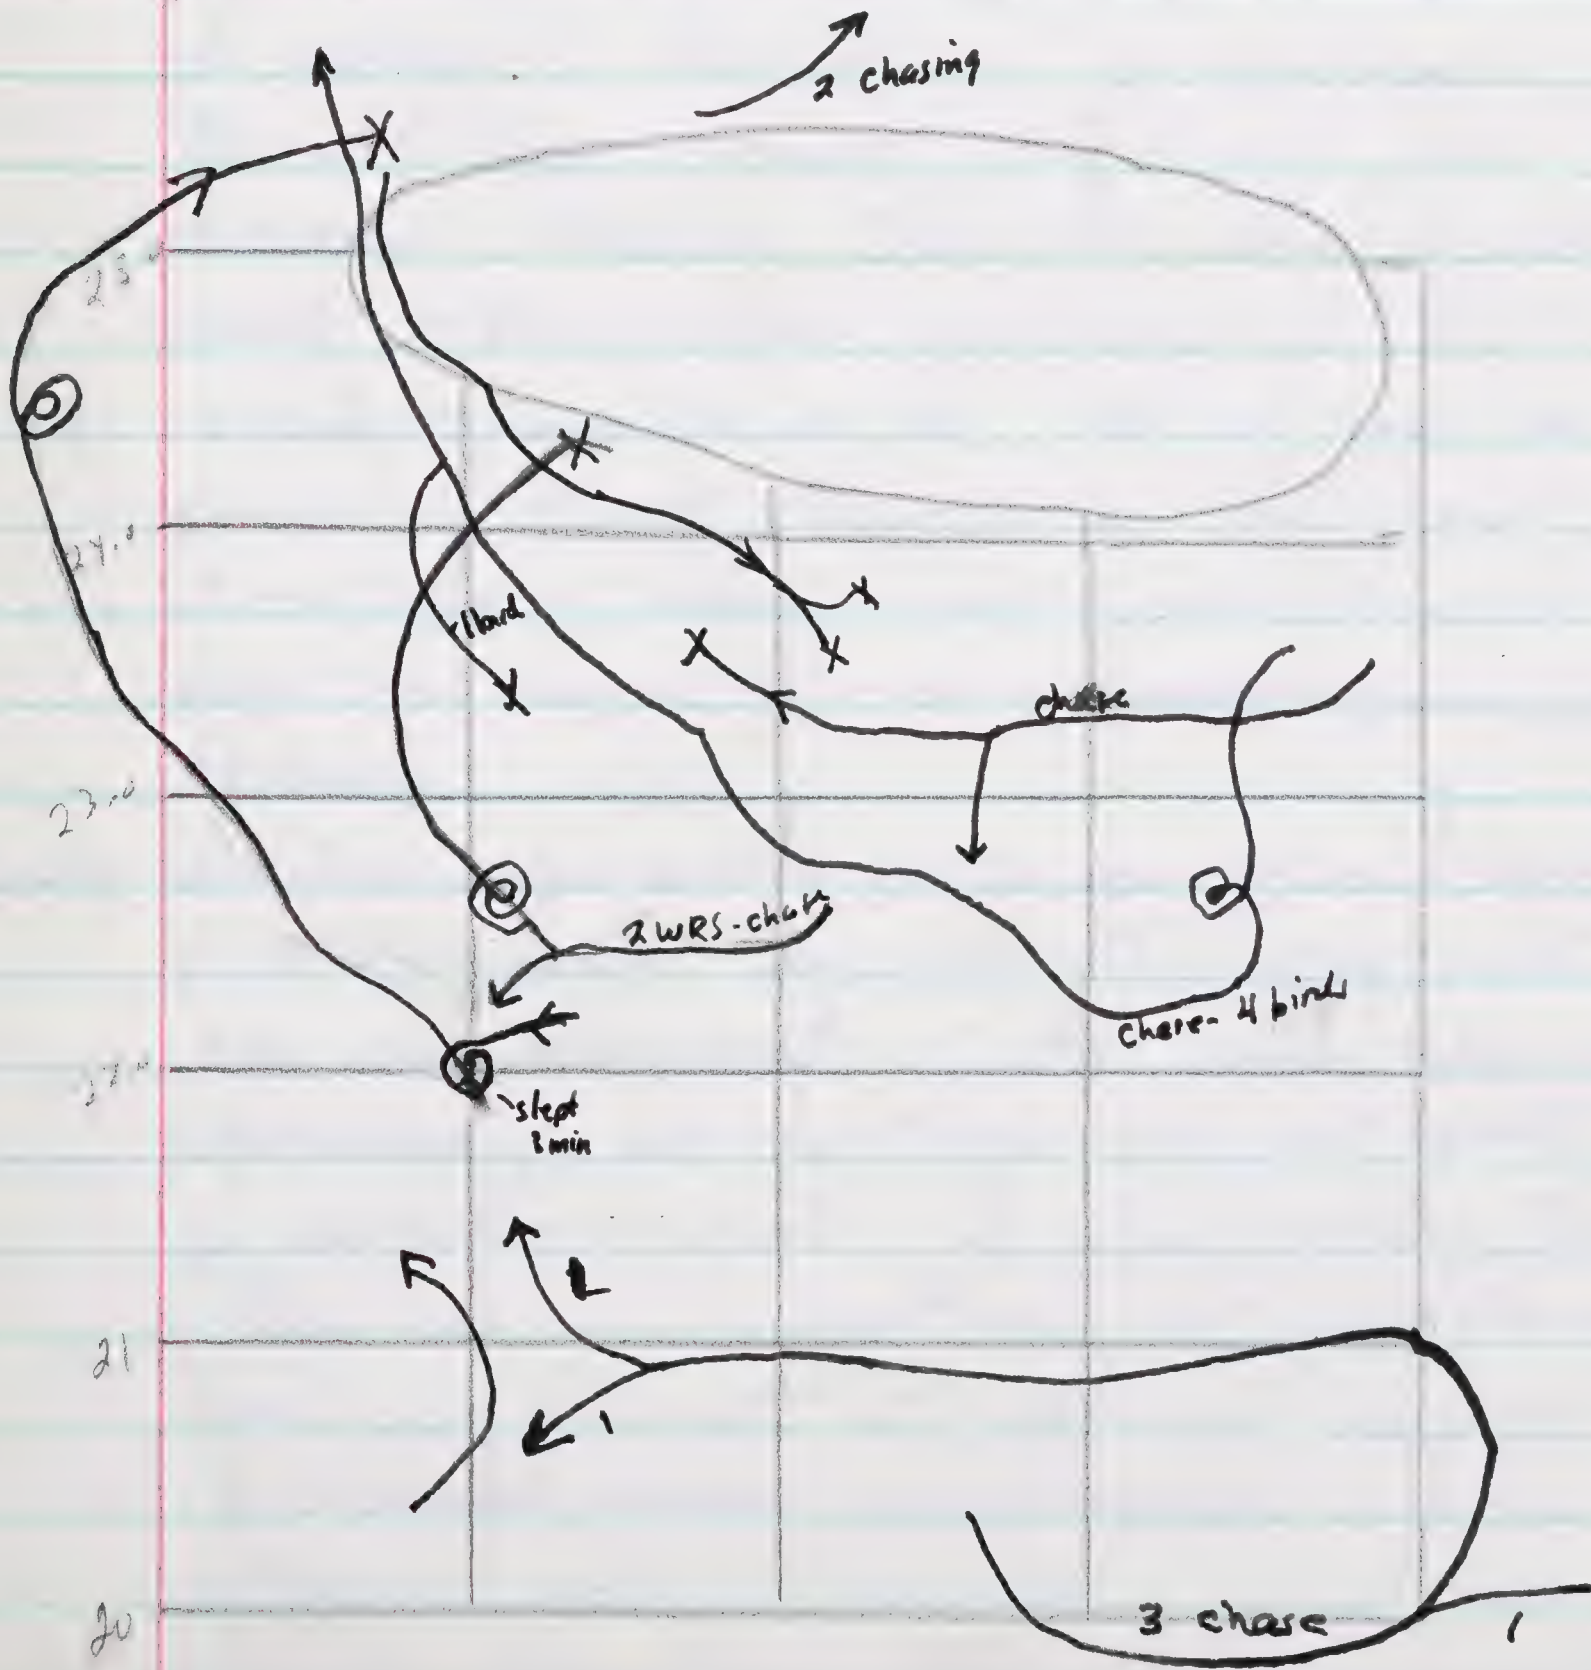 2 chasing
25
24.0
23.0
chase
2 WRS - chase
chase - 4 birds
slept
3 min
2
1
21
20
3 chase
1